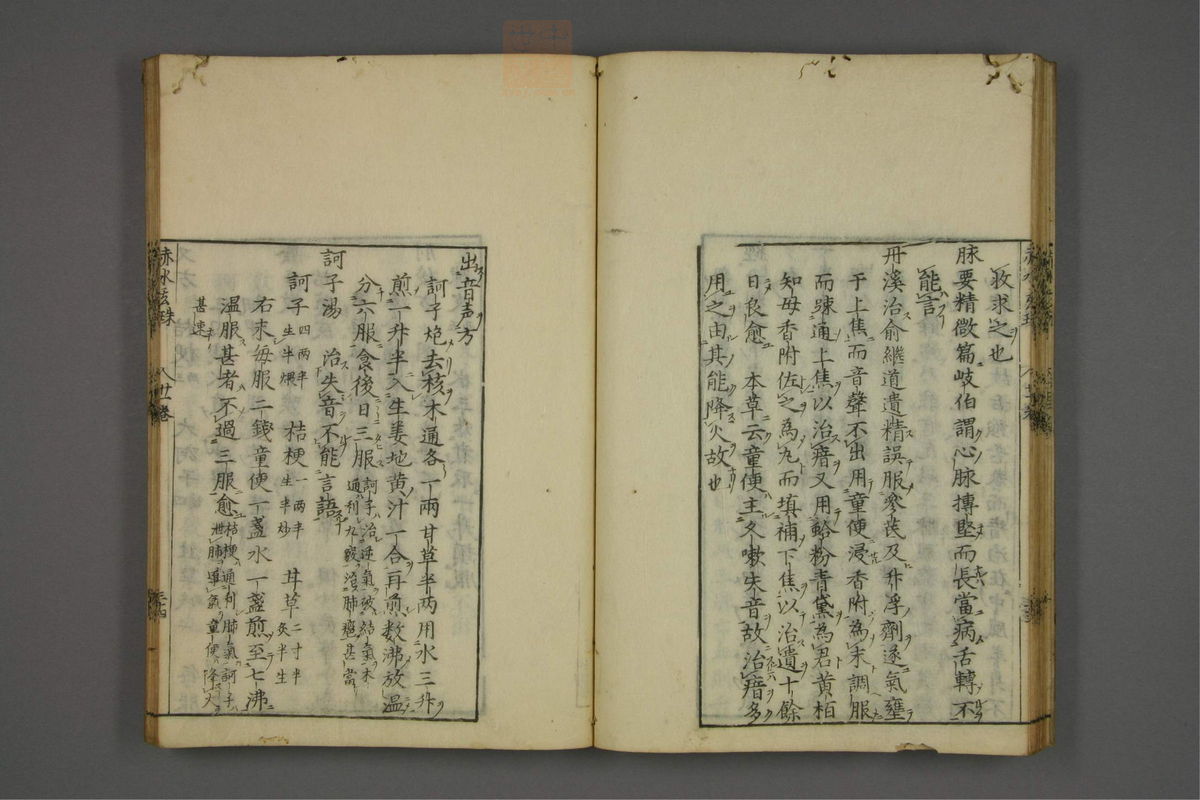 救求之也
脉要精微篇岐伯謂心脉搏堅而長當病舌轉不
能言
丹溪治俞繼道遺精誤服參芪及升浮劑遂氣壅
于上焦而音聲不出用童便浸香附為末調服
而疎通上焦以治瘖又用蛤粉青黛為君黃柏
知母香附佐之為丸而填補下焦以治遺十餘
日良愈 本草云童便主久嗽失音故治瘖多
用之由其能降火故也
出音声方
訶子炮去核木通各一兩甘草半两用水三升
煎一升半入生姜地黄汁一合再煎数沸放温
分六服食後日三服訶子治逆氣破結氣木通利九竅治肺壅甚當
訶子湯 治失音不能言語
訶子四两半生半煨 桔梗一两半生半炒 甘草二寸半炙半生
右末每服二錢童便一盞水一盞煎至七沸
温服甚者不過三服愈桔梗通利肺氣訶子泄肺導氣童便降火
甚速
赤水玄珠 八 廿卷